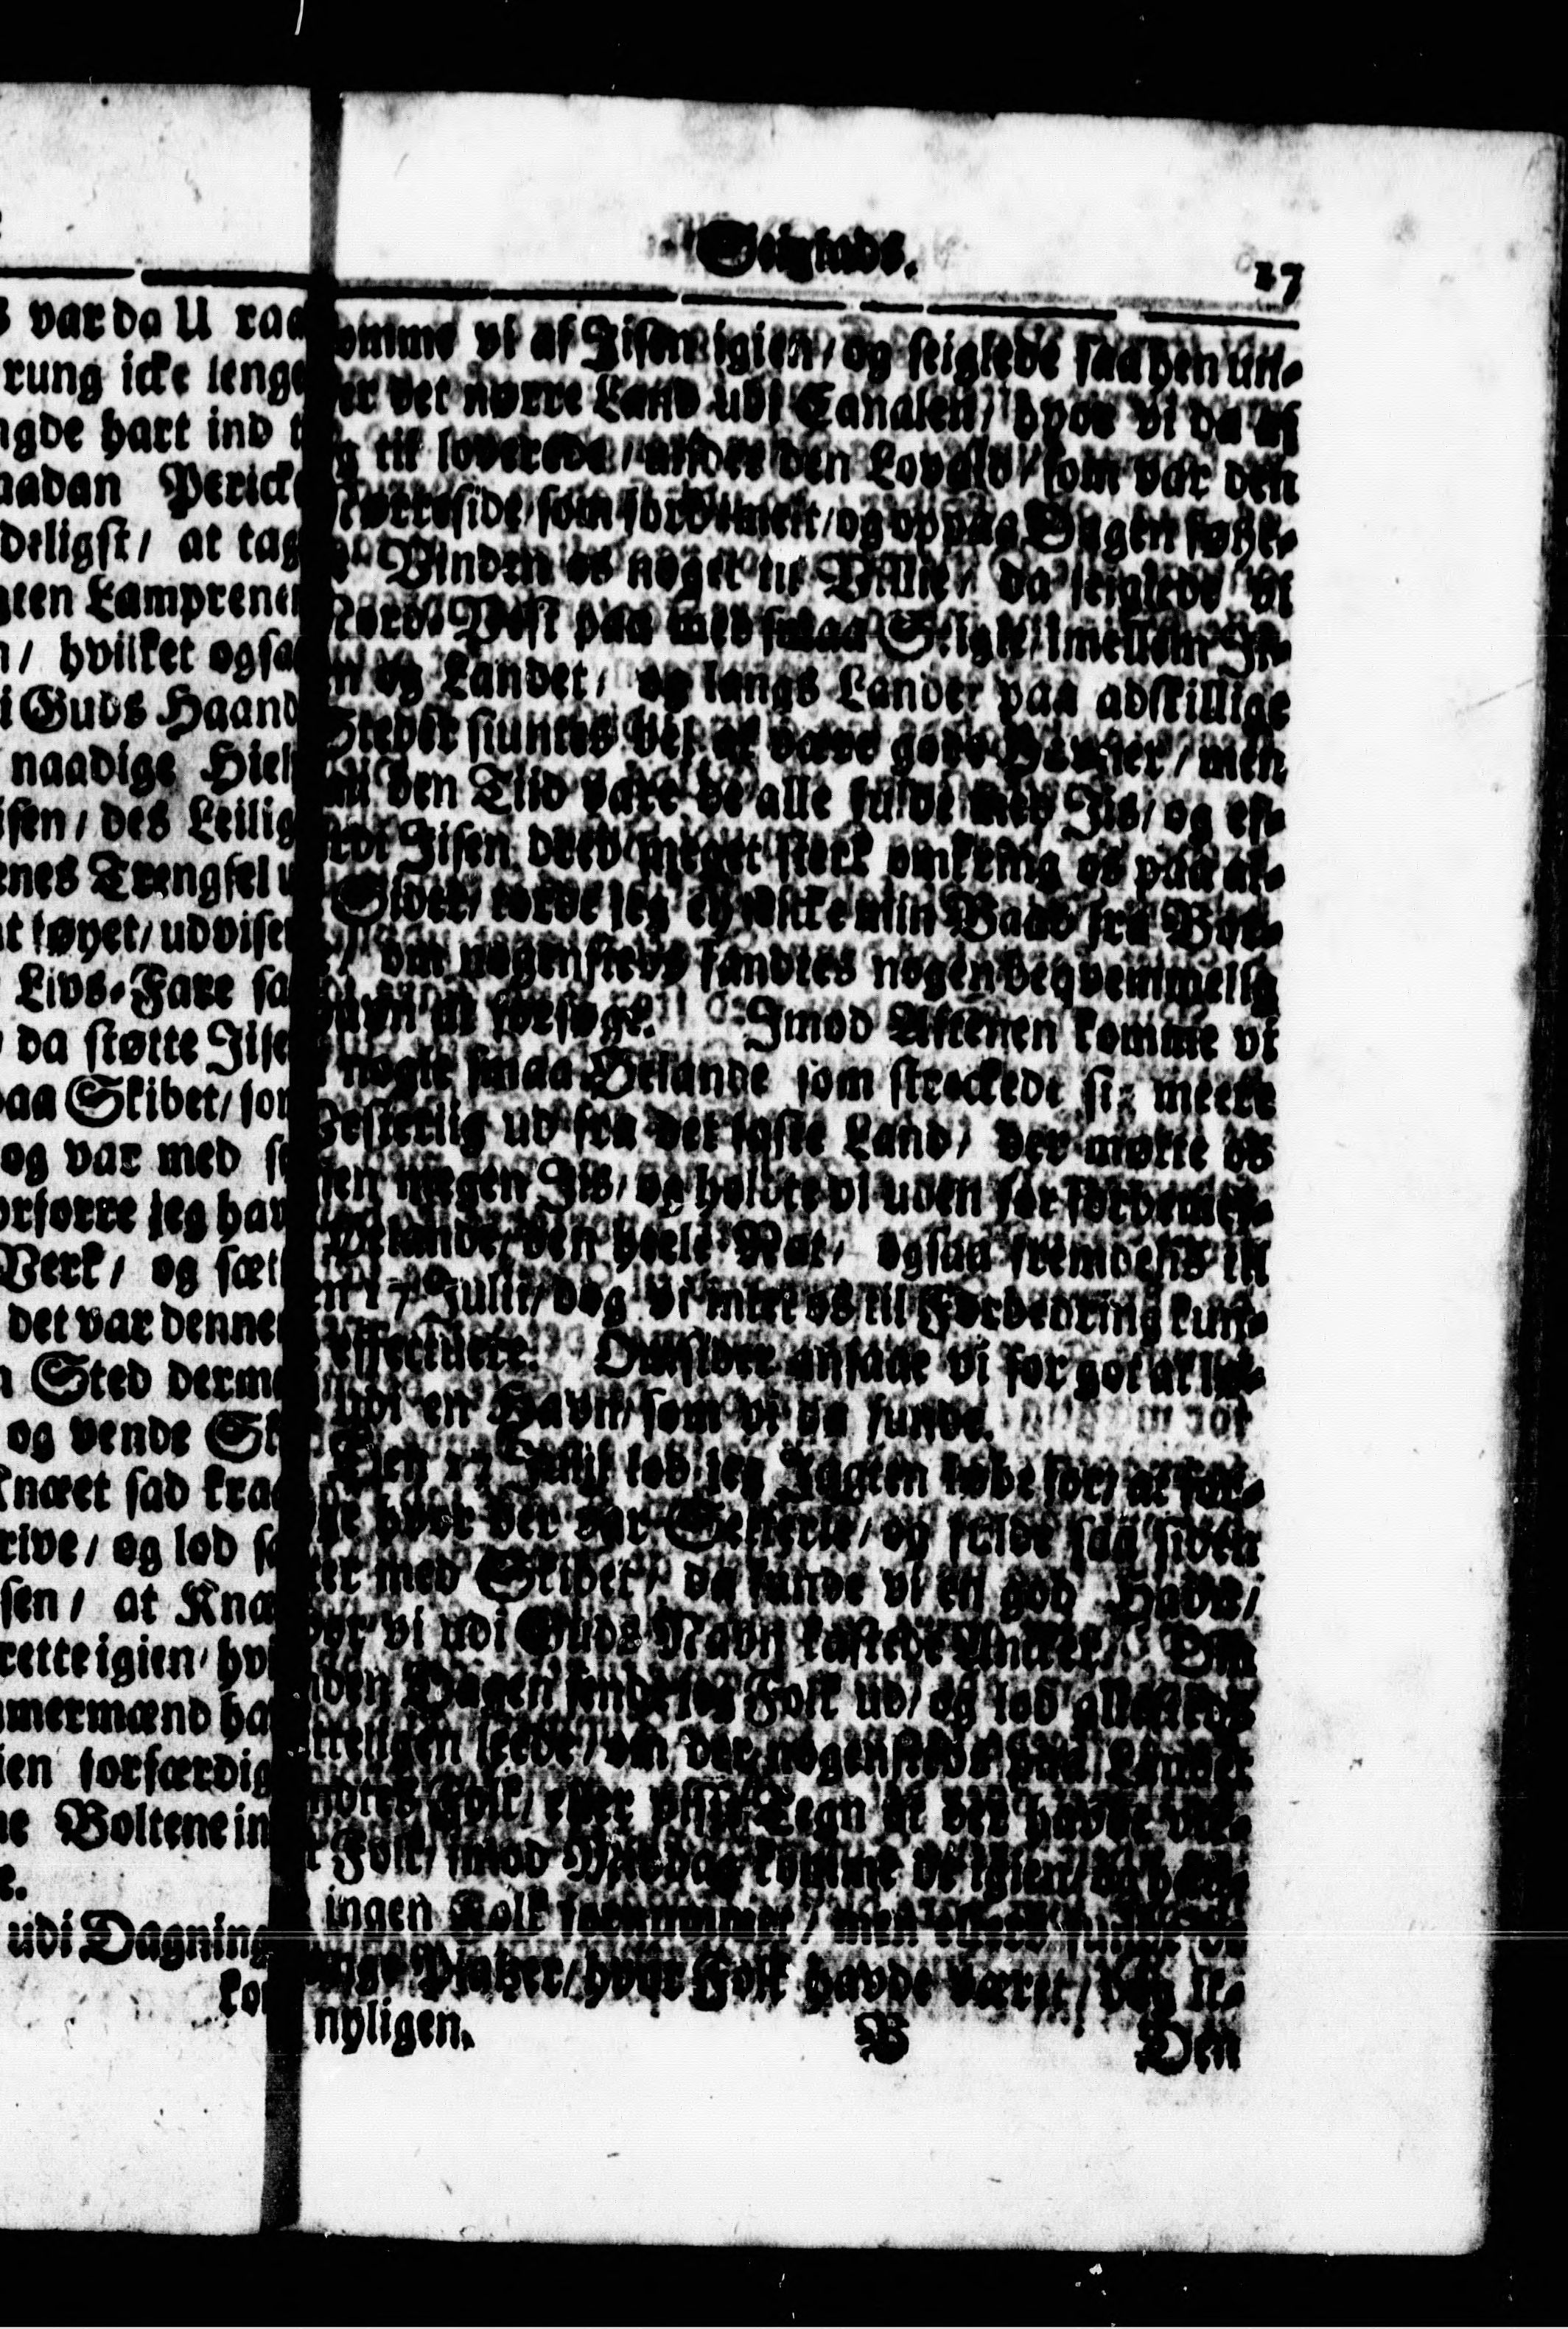 s var da U raa
rung icke lenge
ngde hart ind t
aadan Pericke
deligst/ at tag
gten Lamprenen
n/ hvilket ogsaa
i Guds Haand
naadige Hiel
isen/ des Leilig
enes Trengsel u
t tøyet/ udvisen
Livs-Fare sa
da støtte Jise
paa Skibet/ som
og var med s
orforre jeg hav
Verk/ og sæt
det var dennem
n Sted derme
og vende Sk
Knæet sad kra
rive/ og lod s
sen/ at Knæ
rette igien/ hvi
mermænd ha
ien forfærdig
ne Boltene in
e.
udi Dagning
kom
Seiglads. 27
omme vi af Jisen igien/ og seiglede saa hen un-
er det nørre Land udi Canalen/ hvor vi da af
g til loverede/ under den Lovals/ som var den
Nørreside/ som fordt meît/ og oppaa Dagen føye-
Vinden os noget til Villie/ da seiglede vi
Nord-Vest paa med smaa Seigle/ imellem Ji-
n og Landet/ og langs Landet paa adskillige
Steder siuntes vel at være gode Havner/ men
den Tiid vare de alle fulde med Jis/ og ef-
rdi Jisen drev meget sterk omkring os paa al-
Sider/ torde jeg ey miste min Baad fra Bor-
om nogensteds fandtes nogen beqvemmelig
Havn at forsøge. Jmod Aftenen komme vi
nogle smaa Øelande som streckede sig meere
Vesterlig ud fra det faste Land/ der møtte os
sen megen Jis/ og holdte vi uden for fordemel-
Øelande/ den heele Nat/ ogsaa fremdelis til
en 17 Julii/ dog vi intet os til Forbedring kun-
effectuere. Omsider ansaae vi for got at lø-
udi en Havn/ som vi da funde.
Den 17 Julij lod jeg Jagten løbe for/ at for-
hvor der var Seilerie/ og fulde saa siden
ter med Skibet/ da funde vi en god Havn/
vor vi udi Guds Navn kastede Ancker. Om
den Dagen sendte jeg Folk ud/ og lod allesteds
tteligen leede/ om der nogensteds paa Landet
ndtes Folk/ eller visse Tegn at der havde væ-
t Folk/ imod Middag komme de igien/ og hav-
ingen Folk fornummet/ men ellers funde de
Platzer/ hvor Folk havde været/ dog ic-
nyligen.
B Den